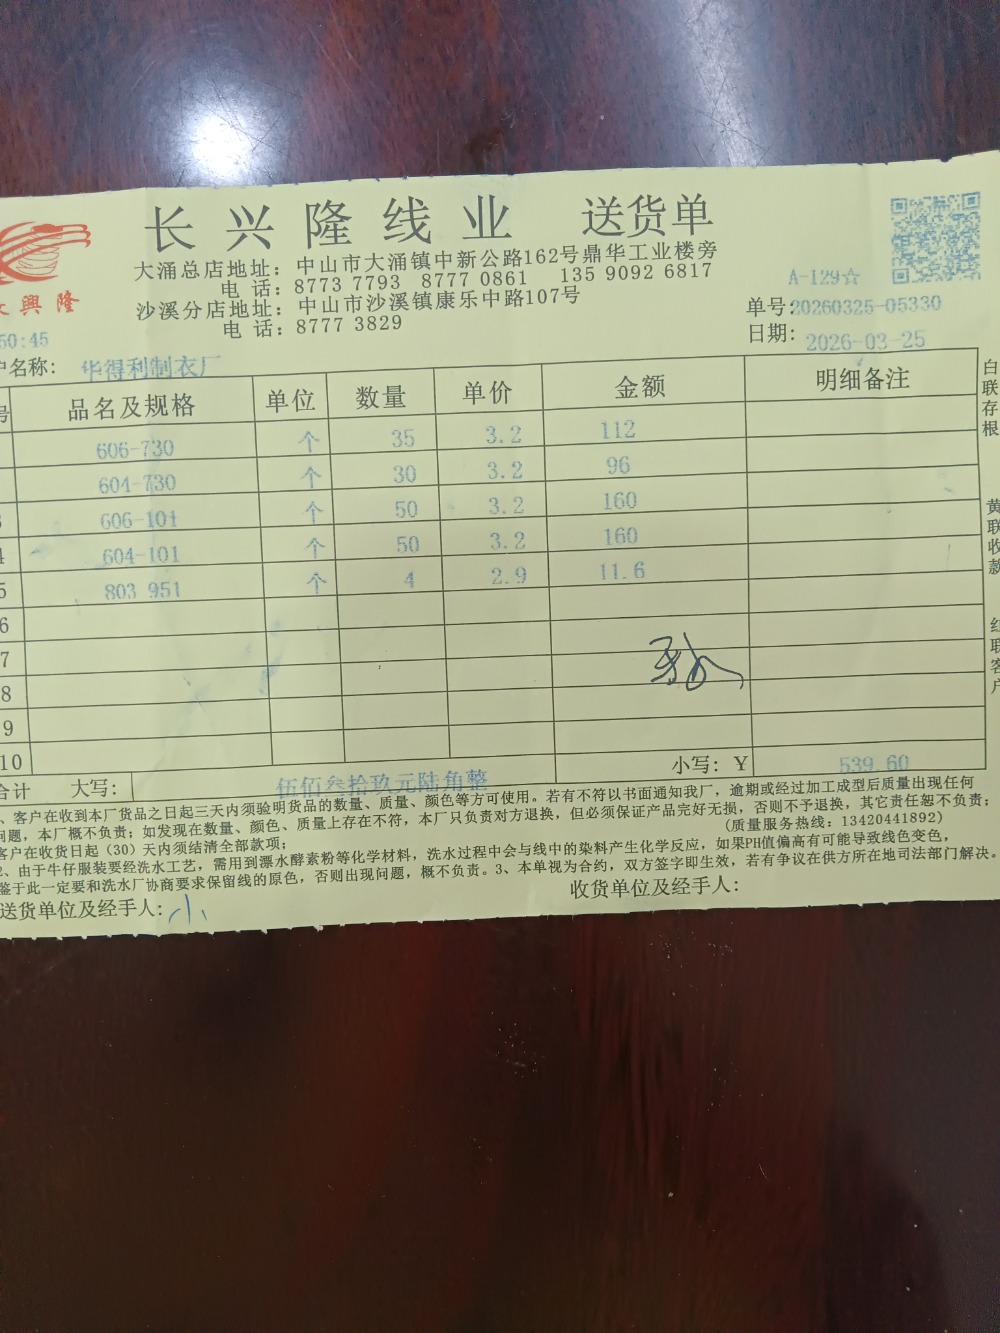 长兴隆线业 送货单
大涌总店地址：中山市大涌镇中新公路162号鼎华工业楼旁
电 话：8773 7793 8777 0861 135 9092 6817
沙溪分店地址：中山市沙溪镇康乐中路107号
电 话：8777 3829
興隆
A-129☆
单号：20260325-05330
50:45
日期：2026-03-25
户名称： 华得利制衣厂
号 品名及规格 单位 数量 单价 金额 明细备注
606-730 个 35 3.2 112
604-730 个 30 3.2 96
3 606-101 个 50 3.2 160
4 604-101 个 50 3.2 160
5 803 951 个 4 2.9 11.6
6
7
8
9
10
合计 大写： 伍佰叁拾玖元陆角整 小写：Y 539.60
、客户在收到本厂货品之日起三天内须验明货品的数量、质量、颜色等方可使用。若有不符以书面通知我厂，逾期或经过加工成型后质量出现任何
问题，本厂概不负责；如发现在数量、颜色、质量上存在不符，本厂只负责对方退换，但必须保证产品完好无损，否则不予退换，其它责任恕不负责；
客户在收货日起（30）天内须结清全部款项； （质量服务热线：13420441892）
2、由于牛仔服装要经洗水工艺，需用到漂水酵素粉等化学材料，洗水过程中会与线中的染料产生化学反应，如果PH值偏高有可能导致线色变色，
鉴于此一定要和洗水厂协商要求保留线的原色，否则出现问题，概不负责。3、本单视为合约，双方签字即生效，若有争议在供方所在地司法部门解决。
送货单位及经手人：小 收货单位及经手人：
白联存根
黄联收款
红联客户